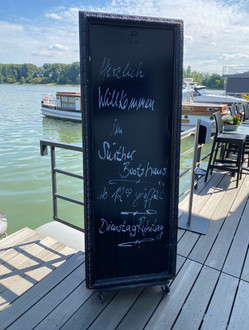 Herzlich
Willkommen
im
Sürther
Bootshaus
ab 12⁰⁰ geöffnet
Dienstag Ruhetag